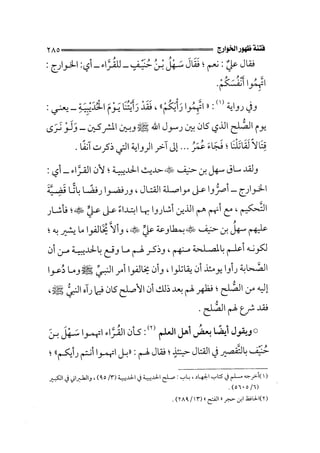 فتنة ظهور الخوارج ٢٨٥
فقال عليٌّ : نعم ؛ فَقَالَ سَهْلُ بْنُ حُنَيْفٍ ـ للقُرَّاء ـ أي : الخوارج :
اتَّهِمُوا أَنْفُسَكُمْ.
وفي رواية (١) : «اتَّهِمُوا رَأْيَكُمْ» ، فَقَدْ رَأَيْتُنَا يَوْمَ الْحُدَيْبِيَةِ ـ يعني :
يوم الصُّلح الذي كان بين رسول الله ﷺ وبين المشركين ـ وَلَوْ نَرَى
قِتَالًا لَقَاتَلْنَا ؛ فَجَاءَ عُمَرُ ... إلى آخر الرواية التي ذكرت آنفًا .
ولقد ساق سهل بن حنيف ﷺ حديث الحديبية ؛ لأن القرَّاء ـ أي :
الخوارج ـ أصرُّوا على مواصلة القتال ، ورفضوا رفضًا باتًّا قضيَّة
التَّحكيم ، مع أنهم هم الذين أشاروا بها ابتداءً على عليٍّ ؛ فأشار
عليهم سهلُ بن حنيف بمطاوعة عليٍّ ، وألَّا يخالفوا ما يشير به ؛
لكونه أعلم بالمصلحة منهم ، وذكر لهم ما وقع بالحديبية من أن
الصَّحابة رأوا يومئذ أن يقاتلوا ، وأن يخالفوا أمر النبيِّ ﷺ وما دُعوا
إليه من الصُّلح ؛ فظهر لهم بعد ذلك أن الأصلح كان فيما رآه النبيُّ ﷺ ،
فقد شرع لهم الصُّلح .
○ ويقول أيضًا بعضُ أهل العلم (٢) : كأن القُرَّاء اتهموا سَهْلَ بن
حُنَيْف بالتَّقصير في القتال حينئذٍ ؛ فقال لهم : «بل اتهموا أنتم رأيكم» ؛
(١) أخرجه مسلم في كتاب الجهاد ، باب : صلح الحديبية في الحديبية (٣/ ٩٥) ، والطبراني في الكبير
(٦/ ٥٦٠٥) .
(٢) الحافظ ابن حجر «الفتح» (١٣/ ٢٨٩) .